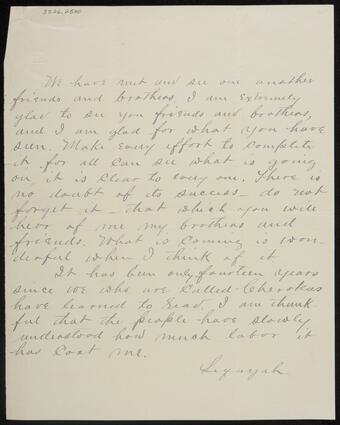 3526.2500
We have met and see one another
friends and brothers, I am extremely
glad to see you friends and brothers,
and I am glad for what you have
seen. Make every effort to complete
it for all can see what is going
on, it is clear to every one. There is
no doubt of its success - do not
forget it - that which you will
hear of me my brothers and
friends. What is coming is won-
derful when I think of it
It has been only fourteen years
since we who are called Cherokees
have learned to read, I am thank
ful that the people have slowly
understood how much labor it
has cost me.
Seqyuyah.